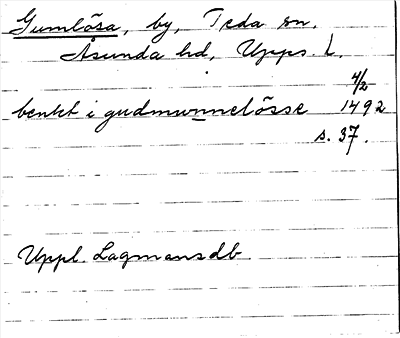 Gumlösa, by, Teda sn.
Åsunda hd, Upps. L.
4/2
benkt i gudmwnnelösse 1492
s. 37.
Uppl. Lagmansdb